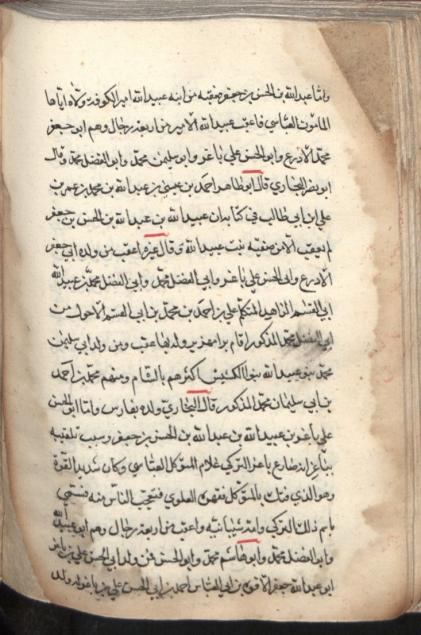 واما عبد الله بن الحسن بن جعفر فعقبه من ابنه عبيد الله امير الكوفة ولاه اياها
المامون العباسي فاعقب عبيد الله الامير من اربعة رجال وهم ابو جعفر
محمد الادرع وابو الحسن علي باغر وابو سليمن محمد وابو الفضل محمد وقال
ابو نصر البخاري قال ابو طاهر احمد بن عيسى بن عبد الله بن محمد بن عمر بن
علي بن ابي طالب في كتابه ان عبيد الله بن عبد الله بن الحسن بن جعفر
لم يعقب الا من صفيه بنت عبيد الله وقال غيره اعقب من ولده ابي جعفر
الادرع وابي الحسن علي باغر وابي الفضل محمد وابي الفضل محمد بن عبيد الله
ابي القسم الزاهد المتكلم علي بن احمد بن محمد بن ابي القسم الاحول من
ابي الفضل محمد المذكور اقام برامهرمز وله بها عقب ومن ولد ابي سليمن
محمد بن عبيد الله بنو الكشيش اكثرهم بالشام ومنهم محمد بن احمد
بن ابي سليمان محمد المذكور قال البخاري ولده بفارس واما ابو الحسن
علي باغر بن عبيد الله بن عبد الله بن الحسن بن جعفر وسبب تلقيبه
بباغر انه صارع باغر التركي غلام المتوكل العباسي وكان شديد القوة
وهو الذي فتك بالمتوكل فقهره العلوي فتعجب الناس منه فسمي
باسم ذلك التركي وامه شيبانية واعقب من اربعة رجال وهم ابو عبيد الله
وابو الفضل محمد وابو هاشم محمد وابو الحسن فمن ولد ابي الحسن علي بن باغر
ابو عبد الله جعفر الاقرع بن ابي العباس احمد بن ابي الحسن علي بن باغر له ولد